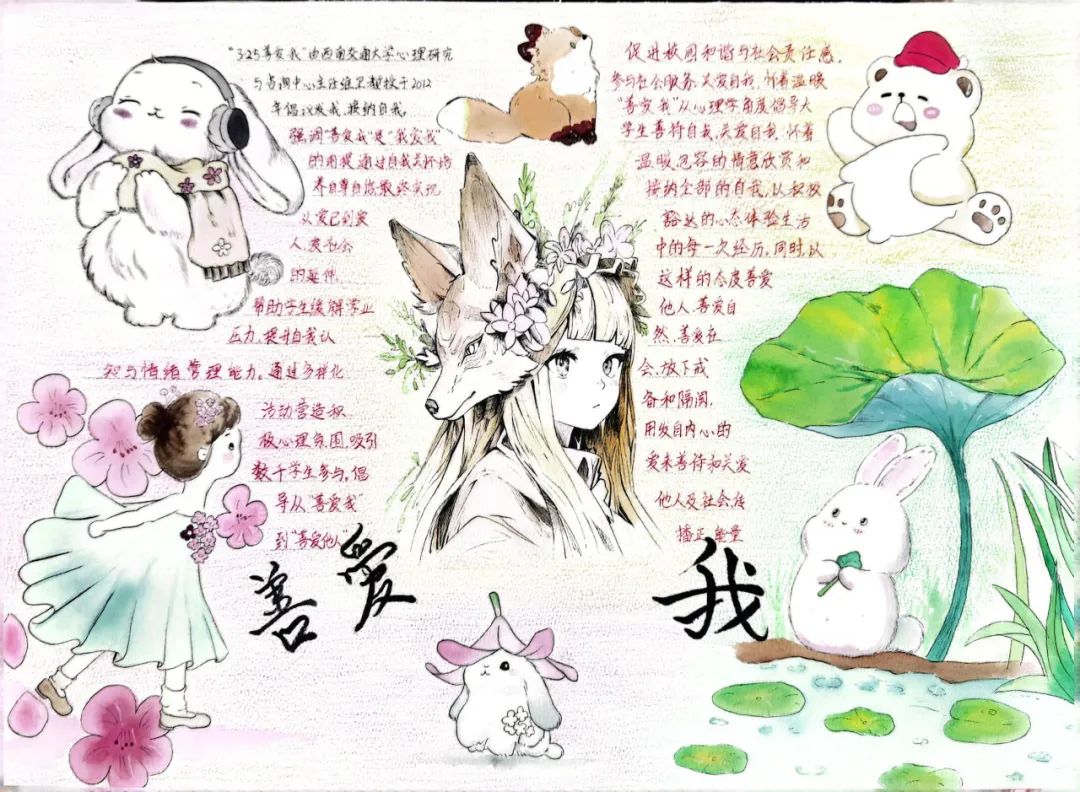 “3·25善爱我”由西南交通大学心理研究
与咨询中心主任雒卫教授于2012
年倡议发我,接纳自我。
强调“善爱我”是“我爱我”
的前提,通过自我关怀培
养自尊自信,最终实现
从爱己到爱
人、爱社会
的延伸。
帮助学生缓解学业
压力,提升自我认
知与情绪管理能力。通过多样化
活动营造积
极心理氛围,吸引
数千学生参与,倡
导从“善爱我”
到“善爱他人”
促进校园和谐与社会责任感。
参与社会服务、关爱自我,怀着温暖
“善爱我”从心理学角度倡导大
学生善待自我、关爱自我,怀着
温暖、宽容的情意欣赏和
接纳全部的自我,以积极
豁达的心态体验生活
中的每一次经历。同时,以
这样的态度善爱
他人、善爱自
然、善爱社
会,放下戒
备和隔阂,
用发自内心的
爱来善待和关爱
他人及社会,传
播正能量
善爱我